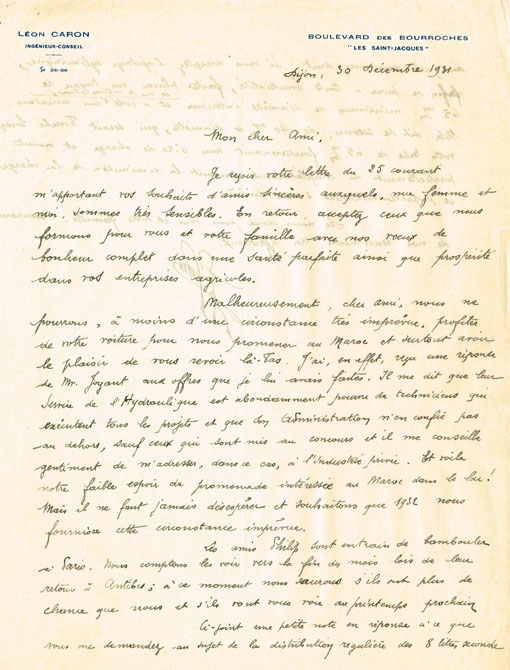 LÉON CARON
INGÉNIEUR-CONSEIL
BOULEVARD DES BOURROCHES
"LES SAINT-JACQUES"
Dijon, 30 Décembre 1931
Mon cher Ami,
Je reçois votre lettre du 25 courant
m'apportant vos souhaits d'amis sincères auxquels, ma femme et
moi, sommes très sensibles. En retour, acceptez ceux que nous
formons pour vous et votre famille avec nos voeux de
bonheur complet dans une santé parfaite ainsi que prospérité
dans vos entreprises agricoles.
Malheureusement, cher ami, nous ne
pourrons, à moins d'une circonstance très imprévue, profiter
de votre voiture pour nous promener au Maroc et surtout avoir
le plaisir de vous revoir là-bas. J'ai, en effet, reçu une réponse
de Mr. Joyant aux offres que je lui avais faites. Il me dit que leur
Service de l'Hydraulique est abondamment pourvu de techniciens qui
exécutent tous les projets et que son Administration n'en confie pas
au dehors, sauf ceux qui sont mis au concours et il me conseille
gentiment de m'adresser, dans ce cas, à l'industrie privée. Et voilà
notre faible espoir de promenade intéressée au Maroc dans le lac!
Mais il ne faut jamais désespérer et souhaitons que 1932 nous
fournisse cette circonstance imprévue.
Les amis Philip sont en train de bambouler
à Paris. Nous comptons les voir vers la fin du mois lors de leur
retour à Antibes; à ce moment nous saurons s'ils ont plus de
chance que nous et s'ils vont vous voir au printemps prochain
Ci-joint une petite note en réponse à ce que
vous me demandez au sujet de la distribution régulière des 8 litres seconde